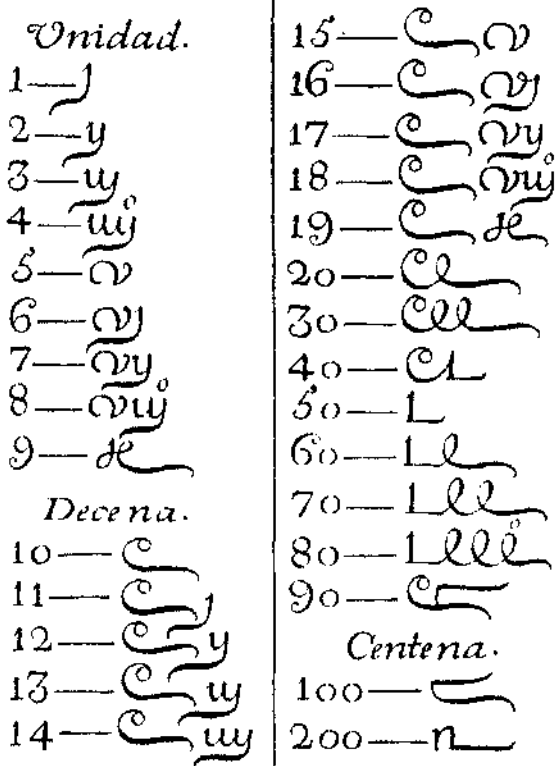 Unidad.
1—j
2—ij
3—iij
4—iiij
5—v
6—vj
7—vij
8—viij
9—ix
Decena.
10—x
11—x j
12—x ij
13—x iij
14—x iiij
15—x v
16—x vj
17—x vij
18—x viij
19—x ix
20—xx
30—xxx
40—xL
50—L
60—Lx
70—Lxx
80—Lxxx
90—xc
Centena.
100—c
200—cc